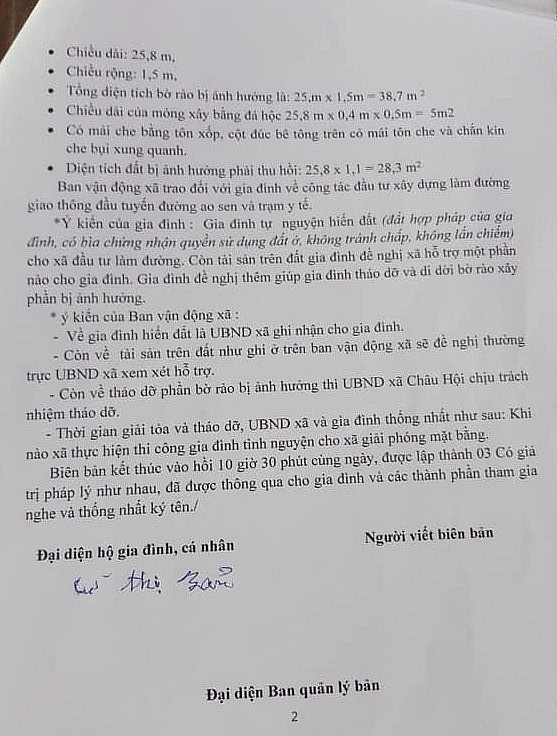 • Chiều dài: 25,8 m,
• Chiều rộng: 1,5 m,
• Tổng diện tích bờ rào bị ảnh hưởng là: 25,m x 1,5m = 38,7 m ²
• Chiều dài của móng xây bằng đá hộc 25,8 m x 0,4 m x 0,5m = 5m2
• Có mái che bằng tôn xốp, cột đúc bê tông trên có mái tôn che và chắn kín
che bụi xung quanh.
• Diện tích đất bị ảnh hưởng phải thu hồi: 25,8 x 1,1 = 28,3 m²
Ban vận động xã trao đổi với gia đình về công tác đầu tư xây dựng làm đường
giao thông đầu tuyến đường ao sen và trạm y tế.
*Ý kiến của gia đình : Gia đình tự nguyện hiến đất (đất hợp pháp của gia
đình, có bìa chứng nhận quyền sử dụng đất ở, không tránh chấp, không lấn chiếm)
cho xã đầu tư làm đường. Còn tài sản trên đất gia đình đề nghị xã hỗ trợ một phần
nào cho gia đình. Gia đình đề nghị thêm giúp gia đình tháo dỡ và di dời bờ rào xây
phần bị ảnh hưởng.
* ý kiến của Ban vận động xã :
- Về gia đình hiến đất là UBND xã ghi nhận cho gia đình.
- Còn về tài sản trên đất như ghi ở trên ban vận động xã sẽ đề nghị thường
trực UBND xã xem xét hỗ trợ.
- Còn về tháo dỡ phần bờ rào bị ảnh hưởng thì UBND xã Châu Hội chịu trách
nhiệm tháo dỡ.
- Thời gian giải tỏa và tháo dỡ, UBND xã và gia đình thống nhất như sau: Khi
nào xã thực hiện thi công gia đình tình nguyện cho xã giải phóng mặt bằng.
Biên bản kết thúc vào hồi 10 giờ 30 phút cùng ngày, được lập thành 03 Có giá
trị pháp lý như nhau, đã được thông qua cho gia đình và các thành phần tham gia
nghe và thống nhất ký tên./
Đại diện hộ gia đình, cá nhân
Người viết biên bản
thị
Đại diện Ban quản lý bản
2